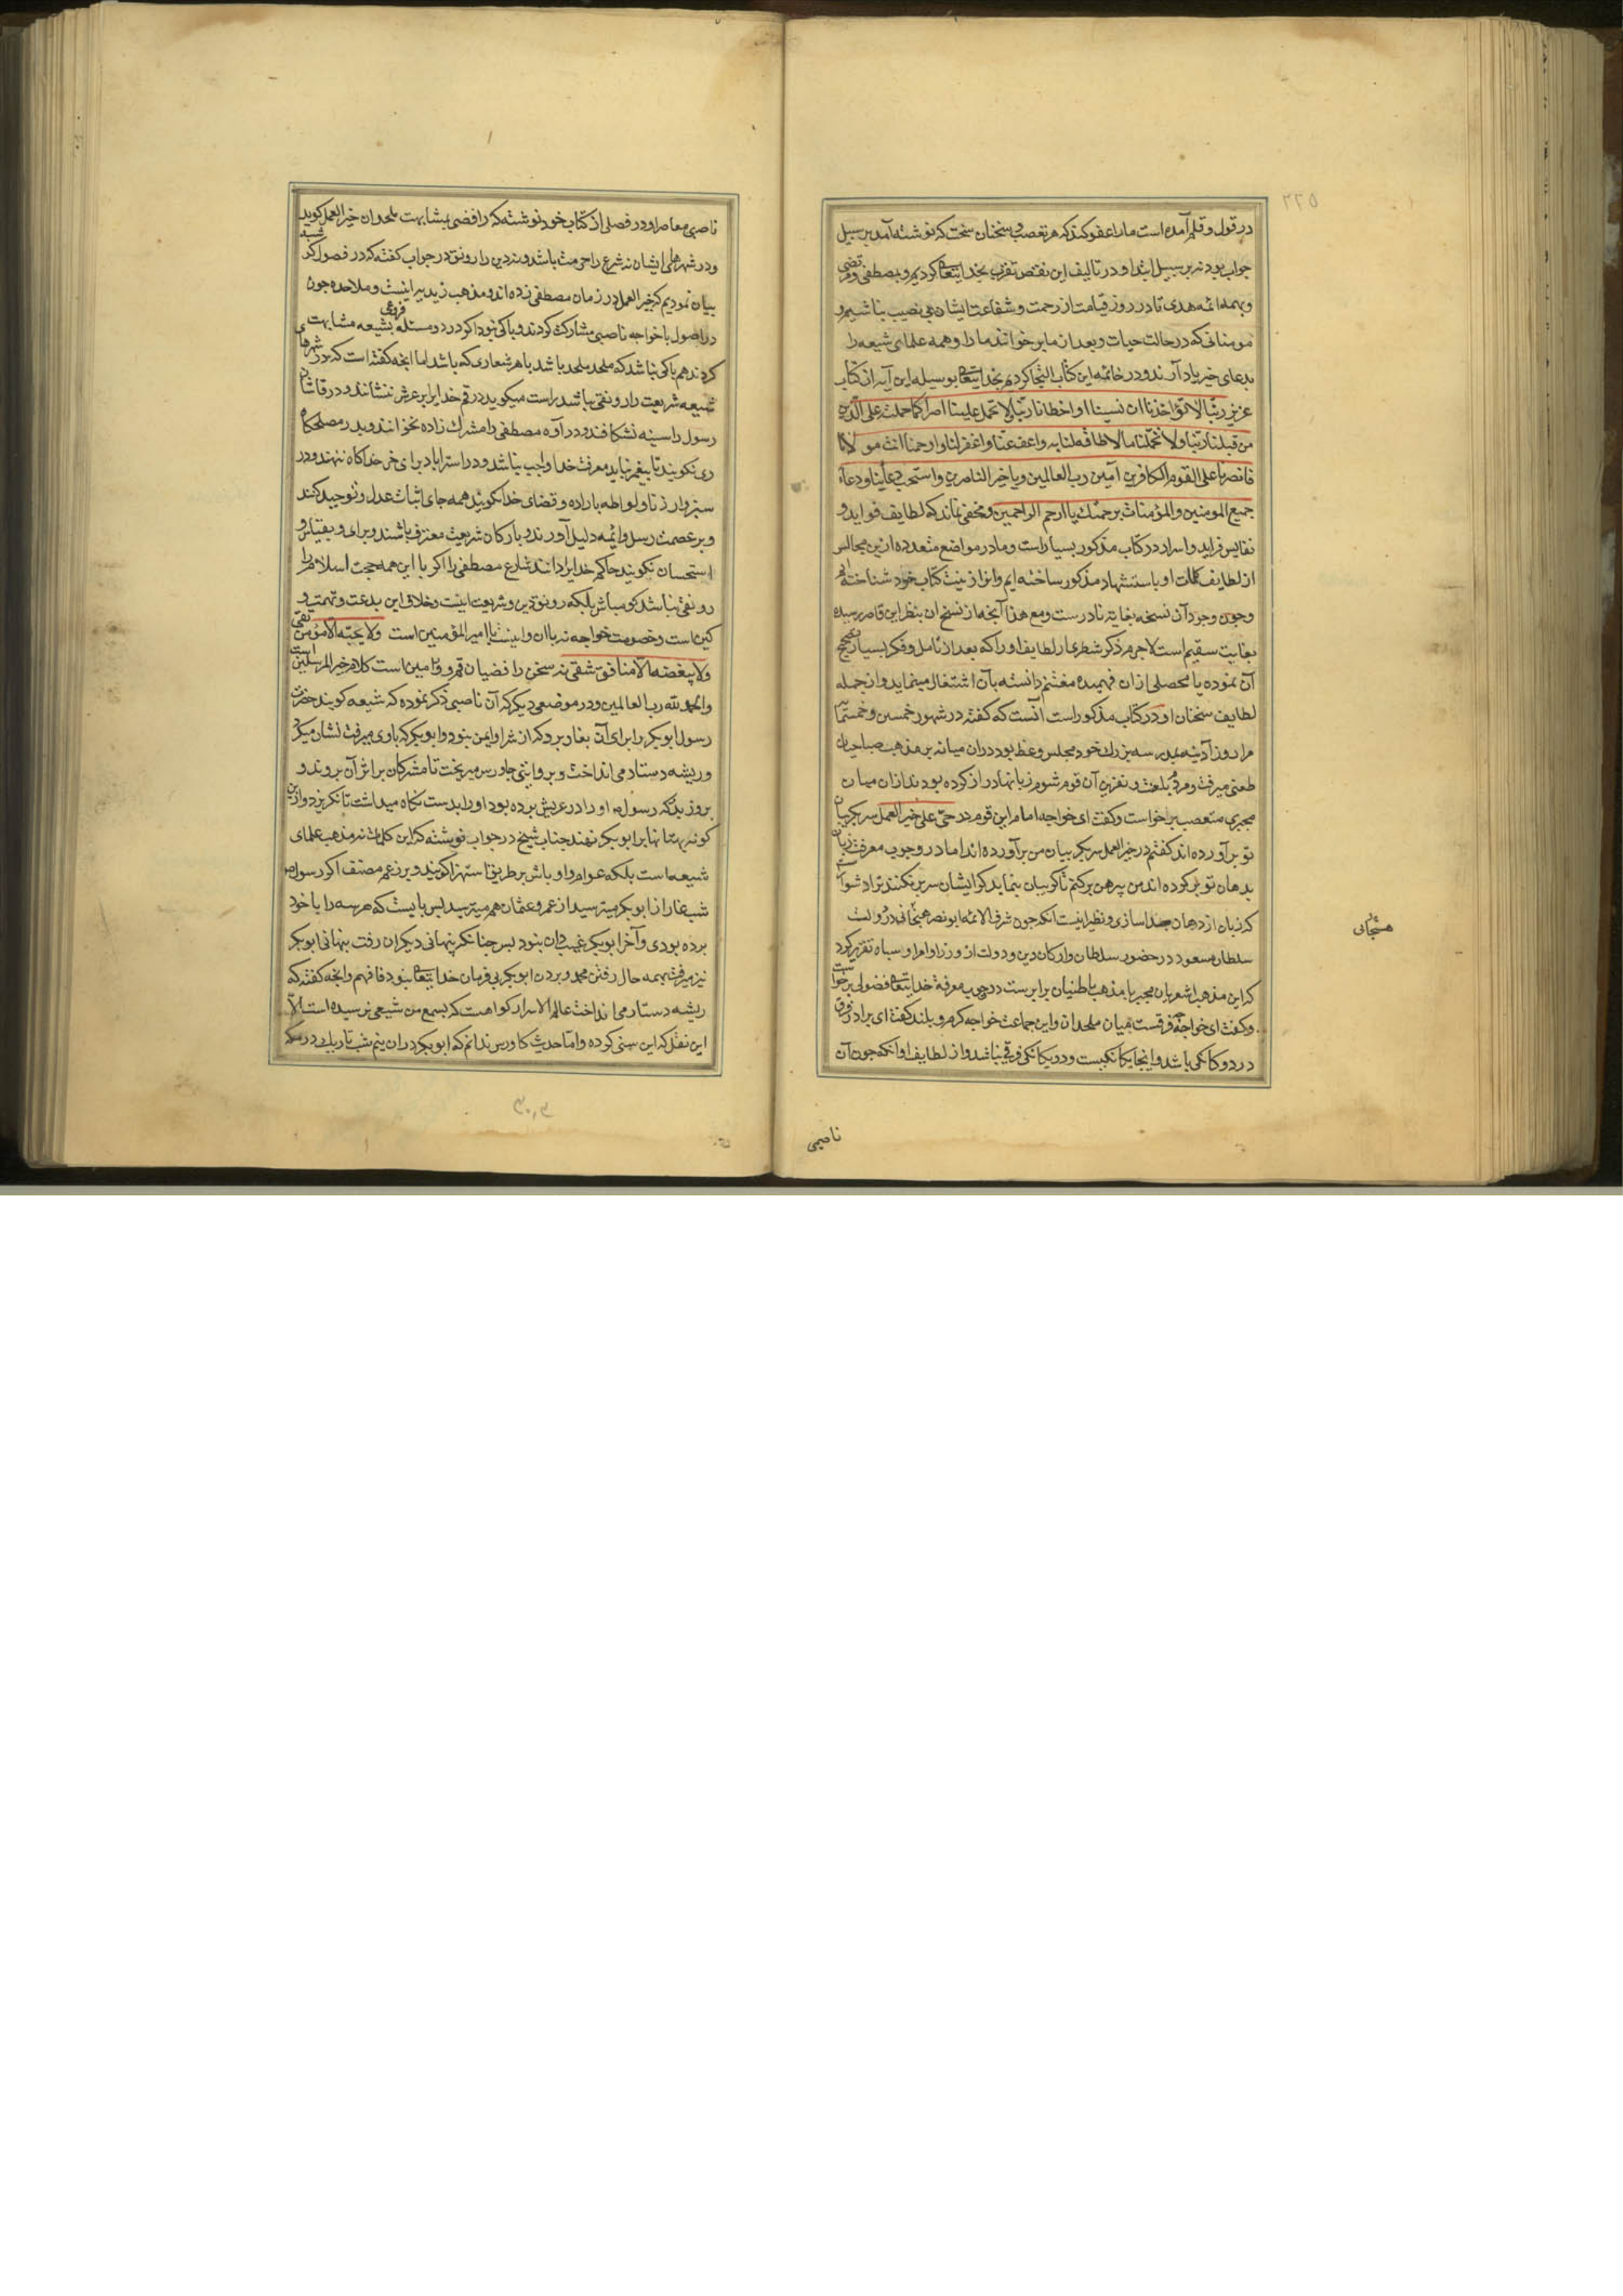 ٢٢٥
در قول و قلم آمده است ما را عفو کند که هر تعصب و سخنان سخت که نوشته آمد بر سبیل
جواب بود نه بر سبیل ابتدا و در تالیف این نقض تقرب بخدایتعالی کردیم و بمصطفی و مرتضی
و بهمه ائمه هدی تا در روز قیامت از رحمت و شفاعت ایشان بی نصیب نباشیم و
مومنانی که در حالت حیات و بعد از ما برخوانند ما را و همه علمای شیعه را
بدعای خیر یاد آرند و در خاتمه این کتاب التجا کردیم بخدایتعالی بوسیله این آیه از کتاب
عزیز ربنا لا تؤاخذنا ان نسینا او اخطانا ربنا و لا تحمل علینا اصرا کما حملته علی الذین
من قبلنا ربنا و لا تحملنا ما لا طاقة لنا به واعف عنا واغفر لنا وارحمنا انت مولانا
فانصرنا علی القوم الکافرین آمین رب العالمین و یا خیر الناصرین واستجب دعاینا و دعاء
جمیع المومنین والمؤمنات برحمتک یا ارحم الراحمین و مخفی نماند که لطایف فواید و
نفایس فراید و اسرار در کتاب مذکور بسیار است و ما در مواضع متعدده ازین مجالس
از لطایف کلمات او باستشهاد مذکور ساخته ایم و انرا زینت کتاب خود شناخته ایم
و چون وجود آن نسخه بغایة نادرست و مع هذا آنچه ما از نسخ ان بنظر این قاصر رسیده
بغایت سقیم است لاجرم ذکر شطری از لطایف او را که بعد از تامل و فکر بسیار تصحیح
آن نموده یا محصلی ازان فهمیده مغتنم دانسته بآن اشتغال مینماید و از جمله
لطایف سخنان او در کتاب مذکور است آنست که گفته در شهور خمسین و خمسمایه
مرا روز آدینه بمدرسه بزرگ خود مجلس وعظ بود دران میانه بر مذهب صباحیان
طعنی میرفت و مردم بلعنت و نفرین آن قوم شوم زبانها دراز کرده بودند ازان میان
مجبری متعصب برخواست و گفت ای خواجه امام این قوم در حی علی خیر العمل سر بگریبان
تو برآورده اند گفتم در خیر العمل سر بگریبان من برآورده اند اما در وجوب معرفت زبان
بدهان تو بر کرده اند من پیرهن برکنم تا گریبان بنماید که ایشان سر برنکنند ترا دشوار است
که زبان از دهان جدا سازی و نظیر اینست انکه چون شرف الائمه ابونصر هسنجانی در دولت
هسنجانی
سلطان مسعود در حضور سلطان و ارکان دین و دولت از وزرا و امرا و سپاه تقریر کرد
که این مذهب اشعریان مجبر با مذهب باطنیان برابرست در وجوب معرفة خدایتعالی فضولی برخواست
و گفت ای خواجه فرقست میان ملحدان و این جماعت خواجه گرم و بلند گفت ای برادر فرق
در دوگانگی باشد و اینجا یگانگیست و در یگانگی فرقی نباشد و از لطایف او انکه چون آن
ناصبی
ناصبی معاصر او در فصلی از کتاب خود نوشته که رافضی بمشابهت ملحدان خیر العمل گوید
و در شهرهای ایشان نه شرع را حرمت باشد و نه دین را رونق در جواب گفته که در فصول گذشته
بیان نمودیم که خیر العمل در زمان مصطفی زده اند و مذهب زیدیه اینست و ملاحده چون
در اصول با خواجه ناصبی مشارکت کردند و باکی نبود اگر در دو مسئله فروعی بشیعه مشابهت
کردند هم باکی نباشد که ملحد ملحد باشد با هر شعاری که باشد اما انچه گفته است که در شهرهای
شیعه شریعت را رونقی نباشد راست میگوید در قم خدایرا بر عرش ننشانند و در قاشان
رسول را سینه نشکافند و در آوه مصطفی را مشرک زاده نخوانند و بدر مصلحگاه
ری نگویند تا پیغمبر نیاید معرفت خدا واجب نباشد و در استراباد برای خر خدا کاه ننهند و در
سبزوار زنا و لواطه باراده و قضای خدا نگویند همه جای اثبات عدل و توحید کنند
و بر عصمت رسل و ائمه دلیل آورند و بارکان شریعت معترف باشند و برای و بقیاس و
استحسان نگویند حاکم خدایرا دانند شارع مصطفی را اگر با این همه حجت اسلام را
رونقی نباشد گو مباش بلکه رونق دین و شریعت اینست و خلاف این بدعت و تهمت و
کین است و خصومت خواجه نه با ان و اینست با امیر المؤمنین است ولا یحبه الا مؤمن تقی
ولا یبغضه الا منافق شقی نه سخن رافضیان قم و ورامین است کلام خیر المرسلین است
والحمد لله رب العالمین و در موضعی دیگر که آن ناصبی ذکر نموده که شیعه گویند حضرت
رسول ابوبکر را برای آن بغار برد که از شر او ایمن نبود و ابوبکر که با وی میرفت نشان میکرد
و ریشه دستار می انداخت و بروایتی جاورس میریخت تا مشرکان بر اثر آن بروند و
بروز بدر که رسول ص او را در عریش برده بود او را بدست نگاه میداشت تا نگریزد و ازین
گونه بهتانها بر ابوبکر نهند جناب شیخ در جواب نوشته که این کلمات نه مذهب علمای
شیعه است بلکه عوام و اوباش بر طریق استهزا گویند و بر زعم مصنف اگر رسول ص
شب غار از ابوبکر میترسید از عمر و عثمان هم میترسید پس بایست که هر سه را با خود
برده بودی و آخر ابوبکر غیب دان نبود پس چنانکه پنهانی دیگران رفت پنهانی ابوبکر
نیز میرفت بهمه حال رفتن محمد و بردن ابوبکر بی فرمان خدایتعالی نبود فافهم و انچه گفته که
ریشه دستار می انداخت عالم الاسرار گواهست که بسمع من شیعی نرسیده است الا
این نقل که این سنی کرده و اما حدیث گاورس ندانم که ابوبکر دران نیم شب تاریک در مکه